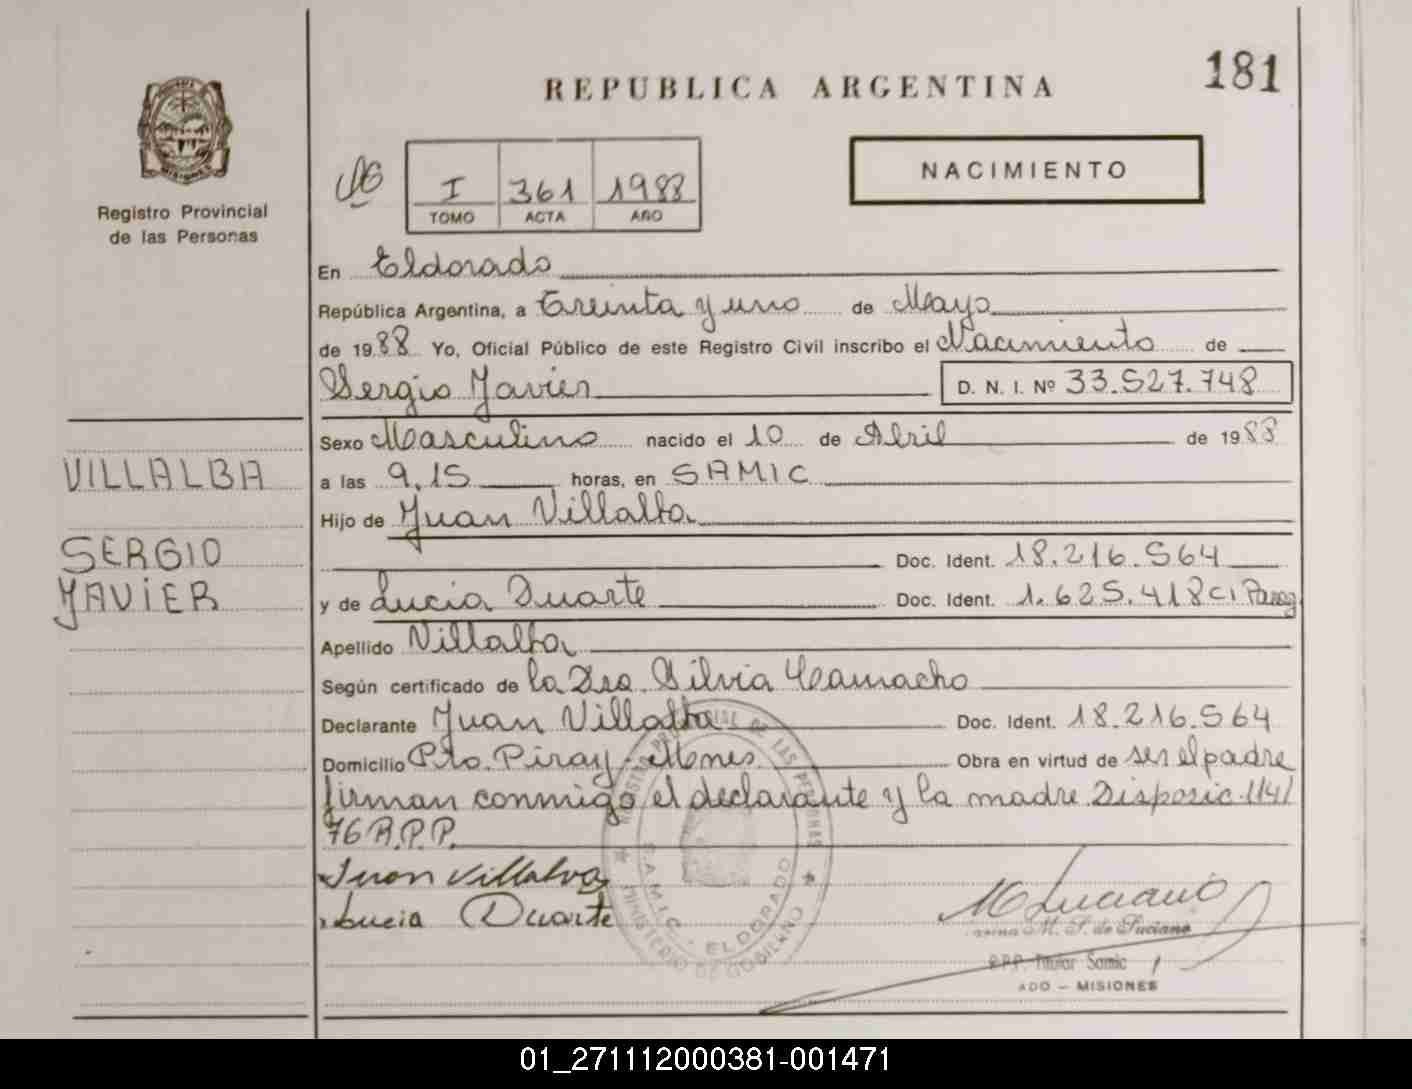 181
REPUBLICA ARGENTINA
MISIONES
Registro Provincial
de las Personas
I 361 1988
TOMO ACTA AÑO
NACIMIENTO
En Eldorado
República Argentina, a Treinta y uno de Mayo
de 1988 Yo, Oficial Público de este Registro Civil inscribo el Nacimiento de
Sergio Javier D. N. I. Nº 33.527.748
Sexo Masculino nacido el 10 de Abril de 1988
VILLALBA
a las 9,15 horas, en SAMIC
Hijo de Juan Villalba
SERGIO
Doc. Ident. 18.216.564
JAVIER
y de Lucia Duarte Doc. Ident. 1.625.418 CI Parag
Apellido Villalba
Según certificado de la Dra. Silvia Camacho
Declarante Juan Villalba Doc. Ident. 18.216.564
Domicilio Pto. Piray - Mnes. Obra en virtud de ser el padre
firman conmigo el declarante y la madre Disposic. 114/
76 R.P.P.
Juan Villalva
Lucia Duarte
REGISTRO PROVINCIAL DE LAS PERSONAS
S.A.M.I.C. - ELDORADO
MINISTERIO DE GOBIERNO
M Luciano
M. S. de Luciano
R.P.P. Titular Samic
ADO - MISIONES
01_271112000381-001471